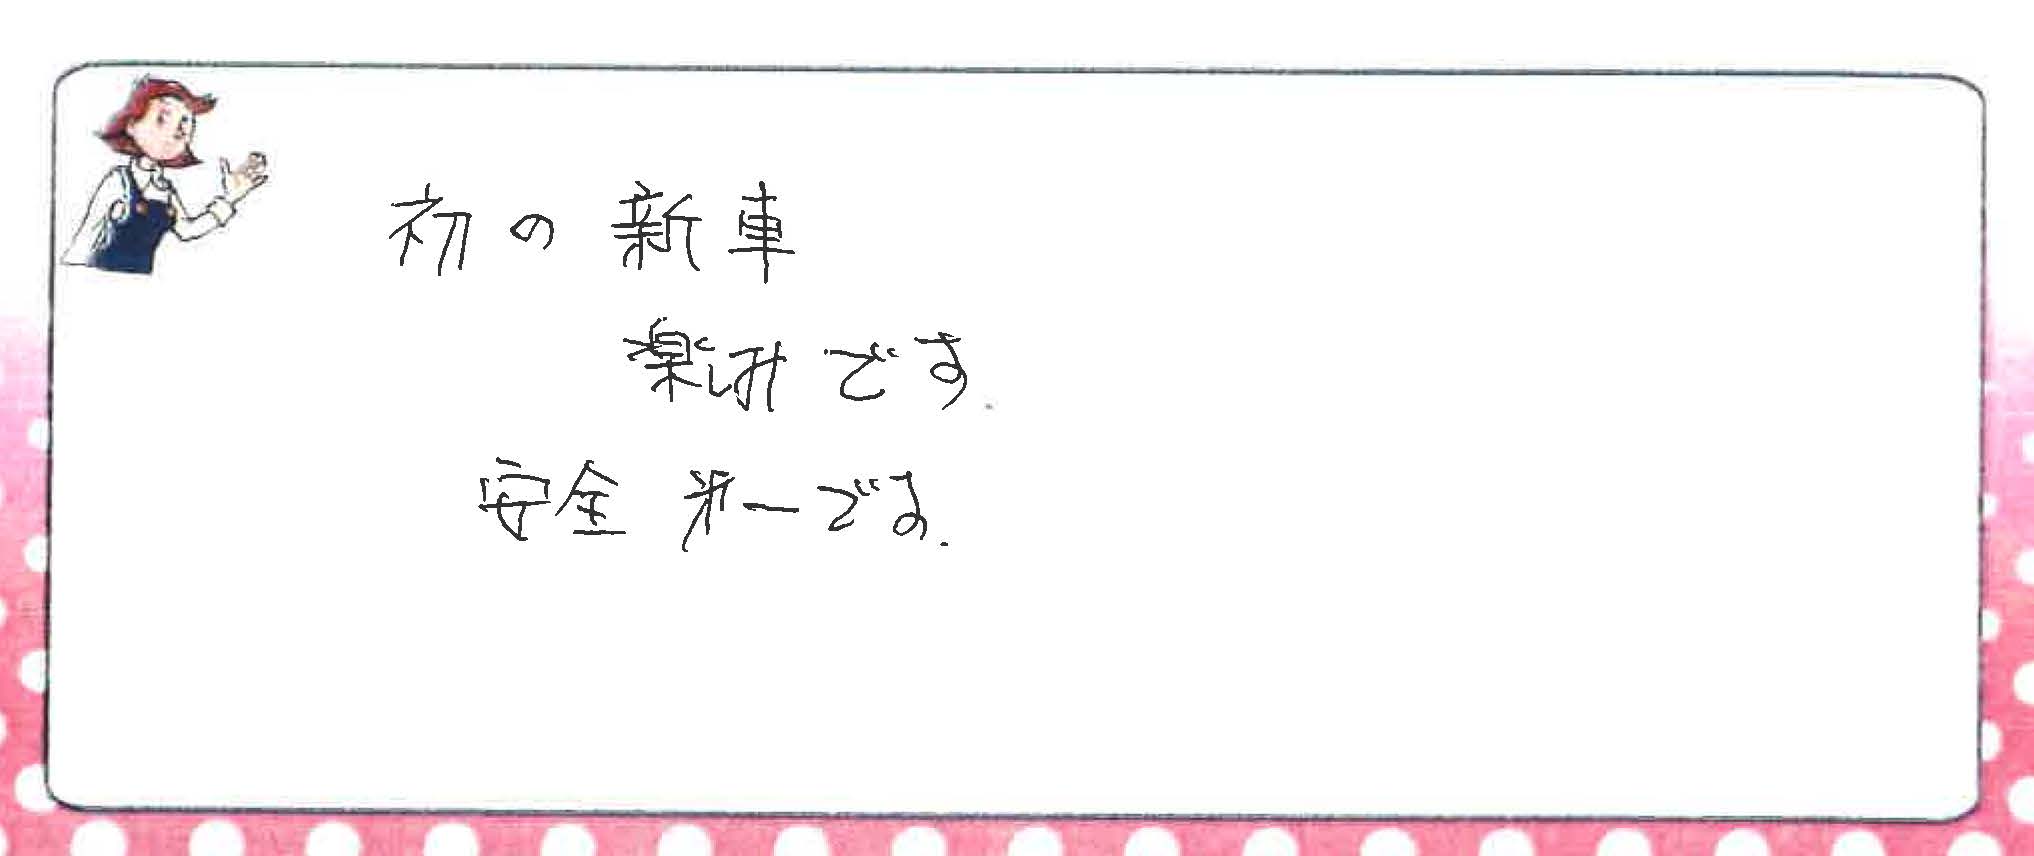 初の新車
楽しみです.
安全第一です.